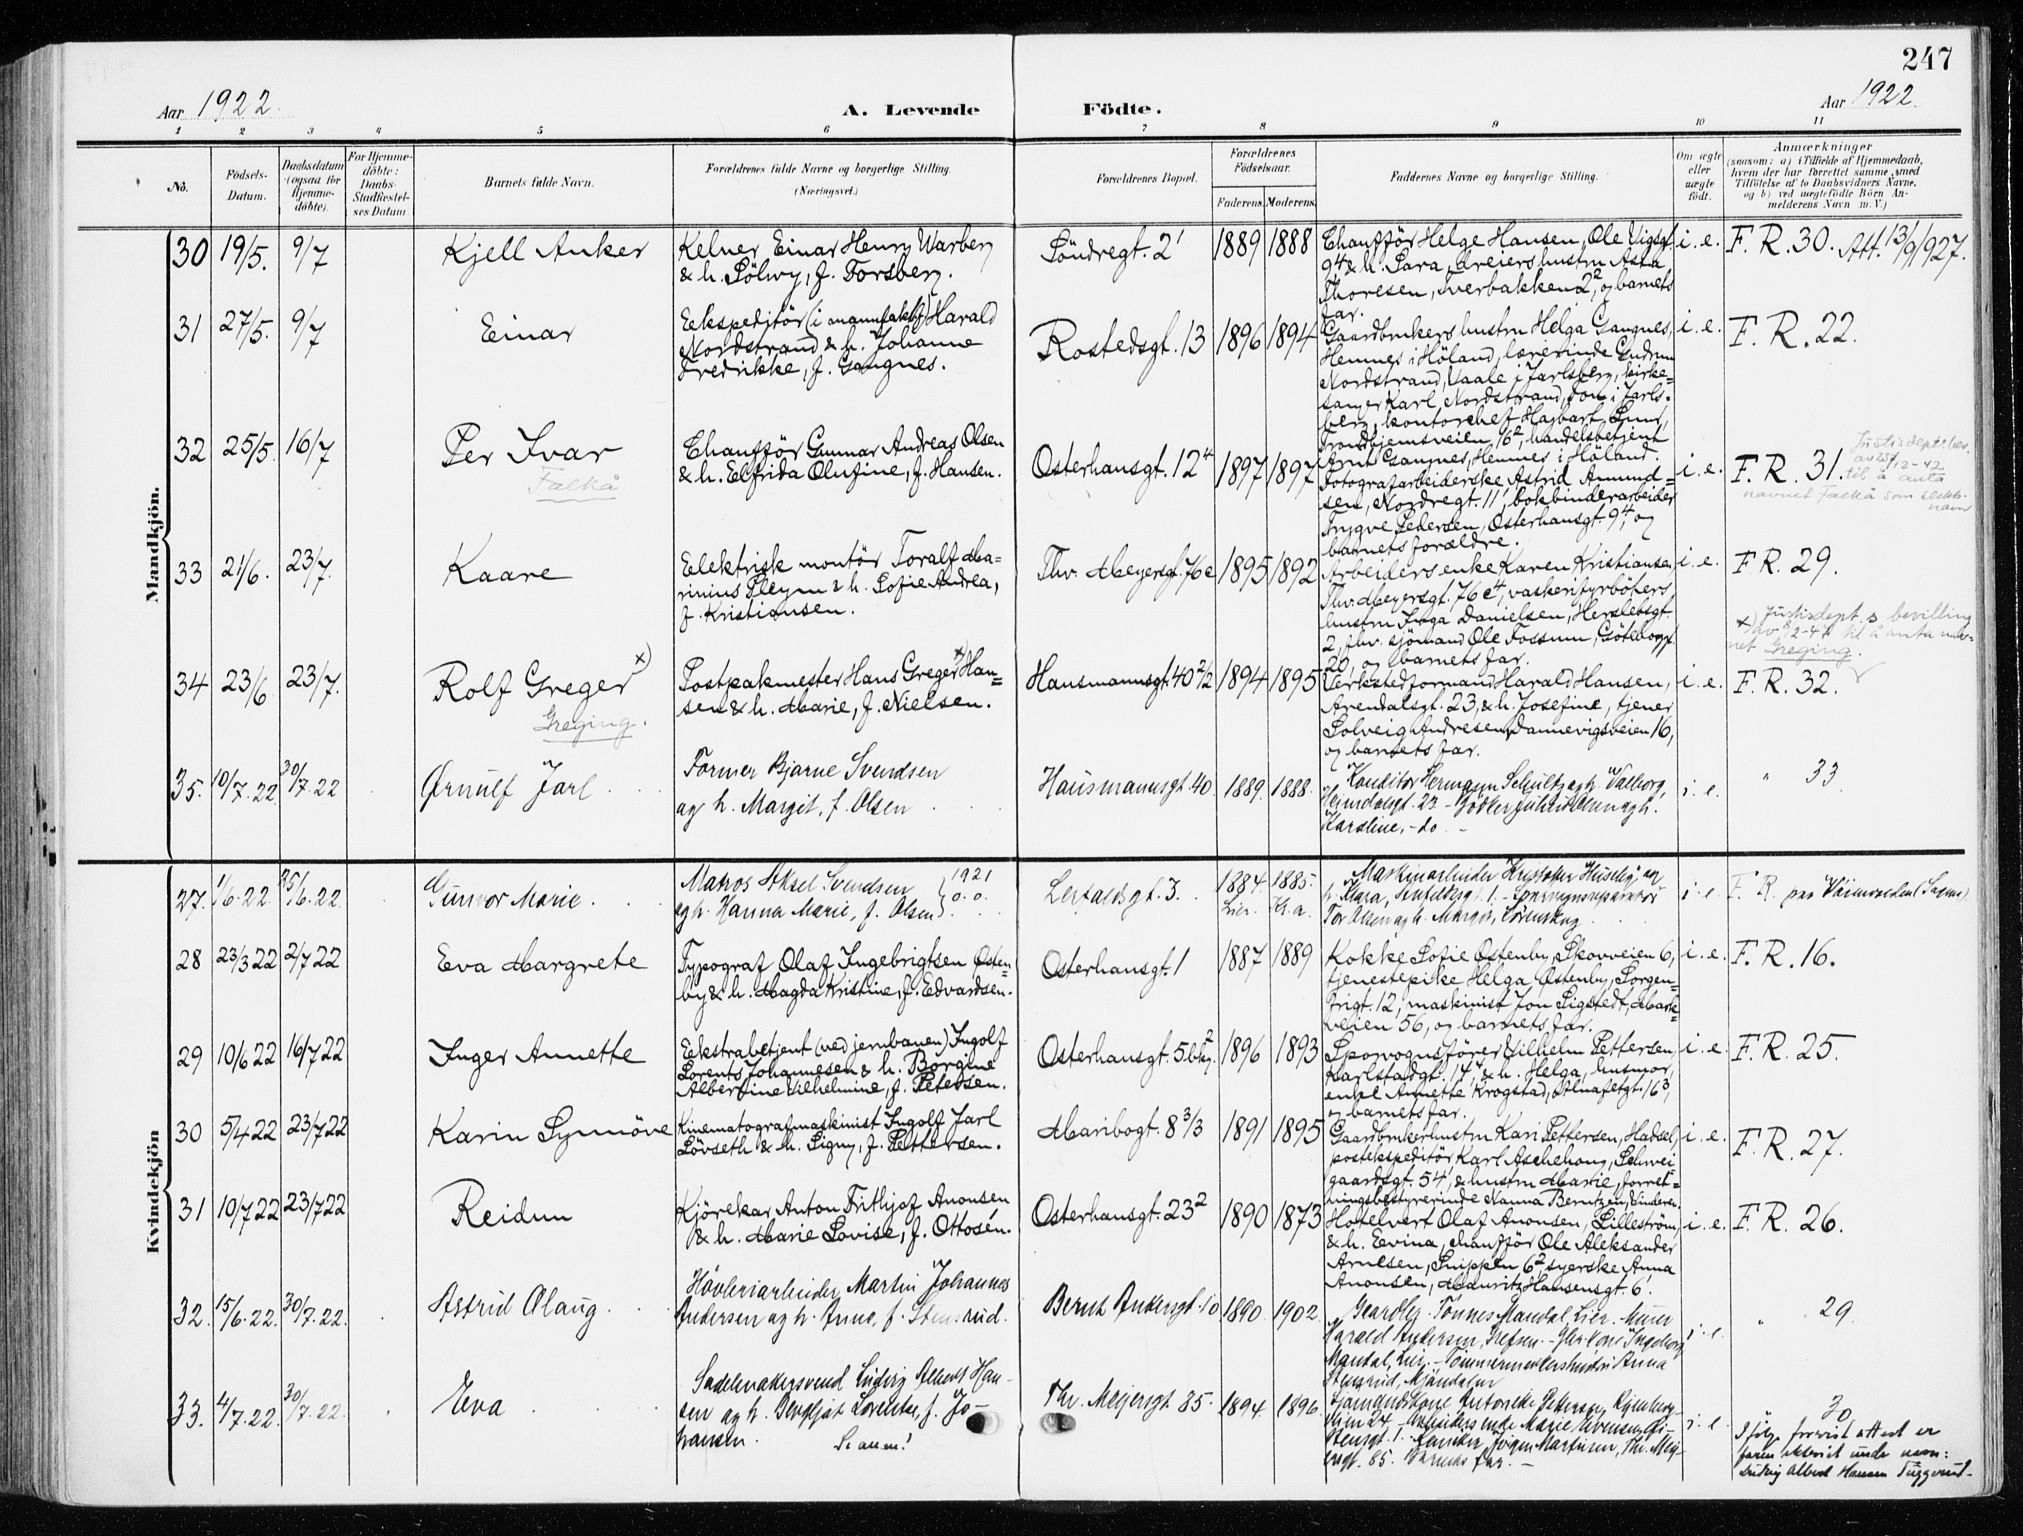 247
Aar 1922. A. Levende Födte. Aar 1922.
1 2 3 4 5 6 7 8 9 10 11
No. Födsels-Datum. Daabsdatum (ogsaa for Hjemme-döbte). For Hjemme-döbte: Daabs-Stadfæstel-ses Datum Barnets fulde Navn. Forældrenes fulde Navne og borgerlige Stilling. (Næringsvei.) Forældrenes Bopæl. Forældrenes Födselsaar. Faderens. Moderens. Faddernes Navne og borgerlige Stilling. Om ægte eller uægte födt. Anmærkninger (saasom: a) i Tilfælde af Hjemmedaab, hvem der har forrettet samme med Tilföielse af to Daabsvidners Navne, og b) ved uægtefödte Börn An-melderens Navn m. V.)
Mandkjön.
30 19/5. 9/7 Kjell Anker
Kelner Einar Henry Warberg
& h. Sölvy, f. Forsberg.
Söndregt. 2' 1889 1888
Chaufför Helge Hansen, Ole Vigsgt.
9⁴ & h. Sara, dreiers hustru Asta
Thoresen, Sverbakken 2², og barnets
far.
i. e. F. R. 30. Att. 13/9/927.
31 27/5. 9/7 Einar
Ekspeditör (i manufaktur) Harald
Nordstrand & h. Johanne
Fredrikke, f. Gangnes.
Rostedsgt. 13 1896 1894
Gaardbrukers hustru Helga Gangnes,
Hemnes i Höland, lærerinde Gudrun
Nordstrand, Vaale i Jarlsberg, kirke=
sanger Karl Nordstrand, do. i Jarls-
berg, kontorchef Hagbart Lund,
Trondhjemsveien 16², handelsbetjent
Arnt Gangnes, Hemnes i Höland.
i. e. F. R. 22.
32 25/5 16/7 Per Ivar
Falkå
Chaufför Gunnar Andreas Olsen
& h. Elfrida Olufine, f. Hansen.
Osterhausgt. 12⁴ 1897 1897
Fotografarbeiderske Astrid Amund=
sen, Nordregt. 11', bokbinderarbeider
Trygve Pedersen, Osterhausgt. 9⁴, og
barnets forældre.
i. e. F. R. 31.
Justisdepts bev.
av 23/12-42
til å anta
navnet Falkå som slekts-
navn
33 21/6. 23/7. Kaare
Elektrisk montör Toralf Ma=
rinius Pleym & h. Sofie Andrea,
f. Kristiansen.
Thv. Meyersgt. 76c 1895 1892
Arbeiders enke Karen Kristiansen
Thv. Meyersgt. 76c⁴, vaskerifyrböters
hustru Inga Danielsen, Herslebsgt.
2, fhv. sjömand Ole Fossum, Göteborggt
20, og barnets far.
i. e. F. R. 29.
34 23/6 23/7. Rolf Greger x)
Greging.
Postpakmester Hans Greger x) Han=
sen & h. Marie, f. Nielsen.
Hausmannsgt. 40 2/2 1894 1895
Verkstedformand Harald Hansen,
Arendalsgt. 23, & h. Josefine, tjener
Solveig Andresen, Dannevigsveien 16,
og barnets far.
i. e. F. R. 32.
x) Justisdept.s bevilling
av 8/2-47 til å anta nav-
net Greging.
35. 10/7.22 30/7.22 Ørnulf Jarl
Former Bjarne Svendsen
og h. Margit, f. Olsen
Hausmannsgt. 40. 1889. 1888.
Konditor Hermann Schultz og h. Valborg,
Heimdalsgt. 23. -
Karoline, - do -
i. e. " 33
Kvindekjön
27. 1/6.22. 25/6.22. Gunvor Marie.
Matros Aksel Svendsen
og h. Hanna Marie, f. Olsen } 1921
Lerfaldsgt. 3. 1884 Lier. 1885. Kr.a.
Maskinarbeider Kristofer Huseby og
h. Mara,
Tor Olsen og h. Margot, Lörenskog
i. e. F. R. paa Vaimonden (Sagene).
28 23/3 22 2/7 22 Eva Margrete
Typograf Olaf Ingebrigtsen Østen=
by & h. Magda Kristine, f. Edvardsen.
Osterhausgt. 1 1887 1889
Kokke Sofie Østenby, Skovveien 6,
tjenestepike Helga Østenby, Sorgen=
frigt. 12, maskinist Jon Sigstedt, Mark=
veien 56, og barnets far.
i. e. F. R. 16.
29 10/6 22 16/7 22 Inger Annette
Ekstrabetjent (ved jernbanen) Ingolf
Lorents Johannesen & h. Borgine
Albertine Vilhelmine, f. Petersen.
Osterhausgt. 5 bkg.² 1896 1893
Sporvognsförer Vilhelm Pettersen,
Karlstadgt. 14, & h. Helga, husmor,
enke Annette Krogstad, Olnafelgt. 16³,
og barnets far.
i. e. F. R. 25.
30 5/4 22 23/7 22 Karin Synnöve
Kinematografmaskinist Ingolf Jarl
Lövseth & h. Signy, f. Pettersen.
Maribogt. 8 3/3 1891 1895
Gaardbrukerhustru Kari Pettersen, Hadsel,
postekspeditör Karl Aschehoug, Schwei=
gaardsgt. 54', & hustru Marie, forret=
ningsbestyrerinde Nanna Berntzen, Vinderen.
i. e. F. R. 27.
31 10/7 22 23/7 22 Reidun
Kjörekar Anton Frithjof Anonsen
& h. Marie Lovise, f. Ottosen.
Osterhausgt. 23² 1890 1873
Hotelvert Olaf Anonsen, Lilleström,
& h. Evina, chaufför Ole Aleksander
Arnesen, Snippen 6², syerske Anna
Anonsen, Mauritz Hansensgt. 6'.
i. e. F. R. 26.
32. 15/6.22. 30/7.22. Astrid Olaug
Hövleriarbeider Martin Johannes
Andersen og h. Anne, f. Stensrud.
Bernt Ankersgt. 10 1890. 1902.
Gaardbr. Tönnes Mandal, Lier. Murer
Harald Andersen, Grefsen. - Ingeborg
Mandal, Lier. - Tömmermandshustru Anna
Stensrud, Mjöndalen
i. e. " 29.
33. 4/7.22. 30/7.22. Eva
Sadelmakersvend Ludvig Albert Han-
sen og h. Bergljot Lorentse, f. Jo-
hansen. Se anm!
Thv. Meyersgt. 85. 1894. 1896.
Sjömands kone Antonette Pedersen,
veien 24. - Arbeiders enke Marie
Jörgen Martinsen, Thv. Mey-
ersgt. 85. Barnets far. -
i. e. 30
Ifölge forevist attest er
faren inskrevet under navn:
Ludvig Albert Hansen Tuggerud.